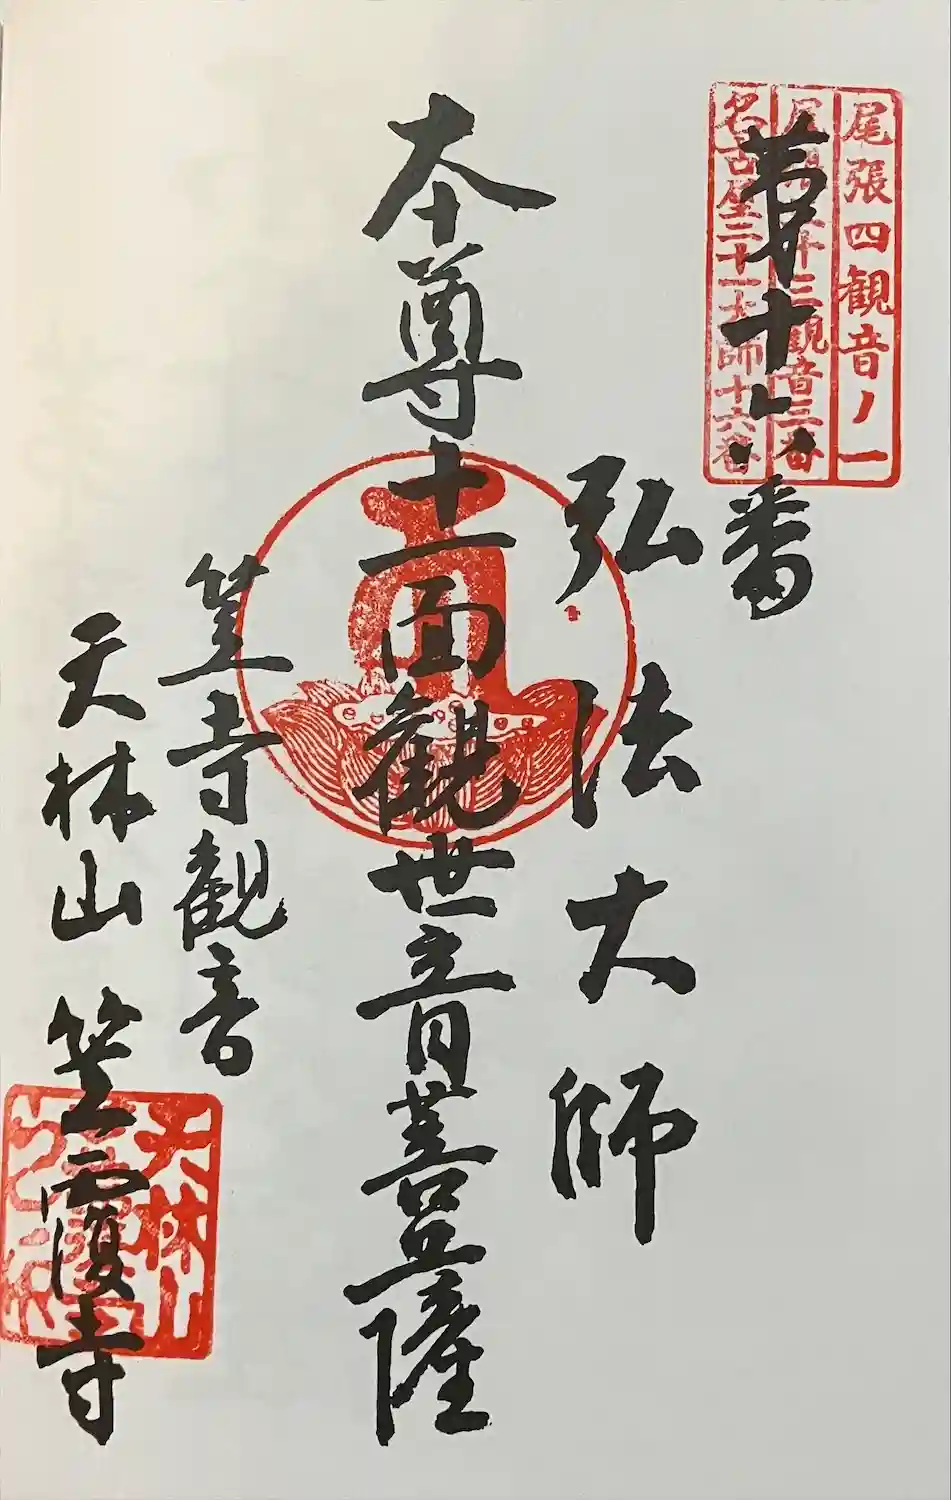 尾張四観音ノ一
尾張三十三観音三番
名古屋二十一大師十六番
第十六番
弘法大師
本尊十一面観世音菩薩
笠寺観音
天林山 笠覆寺